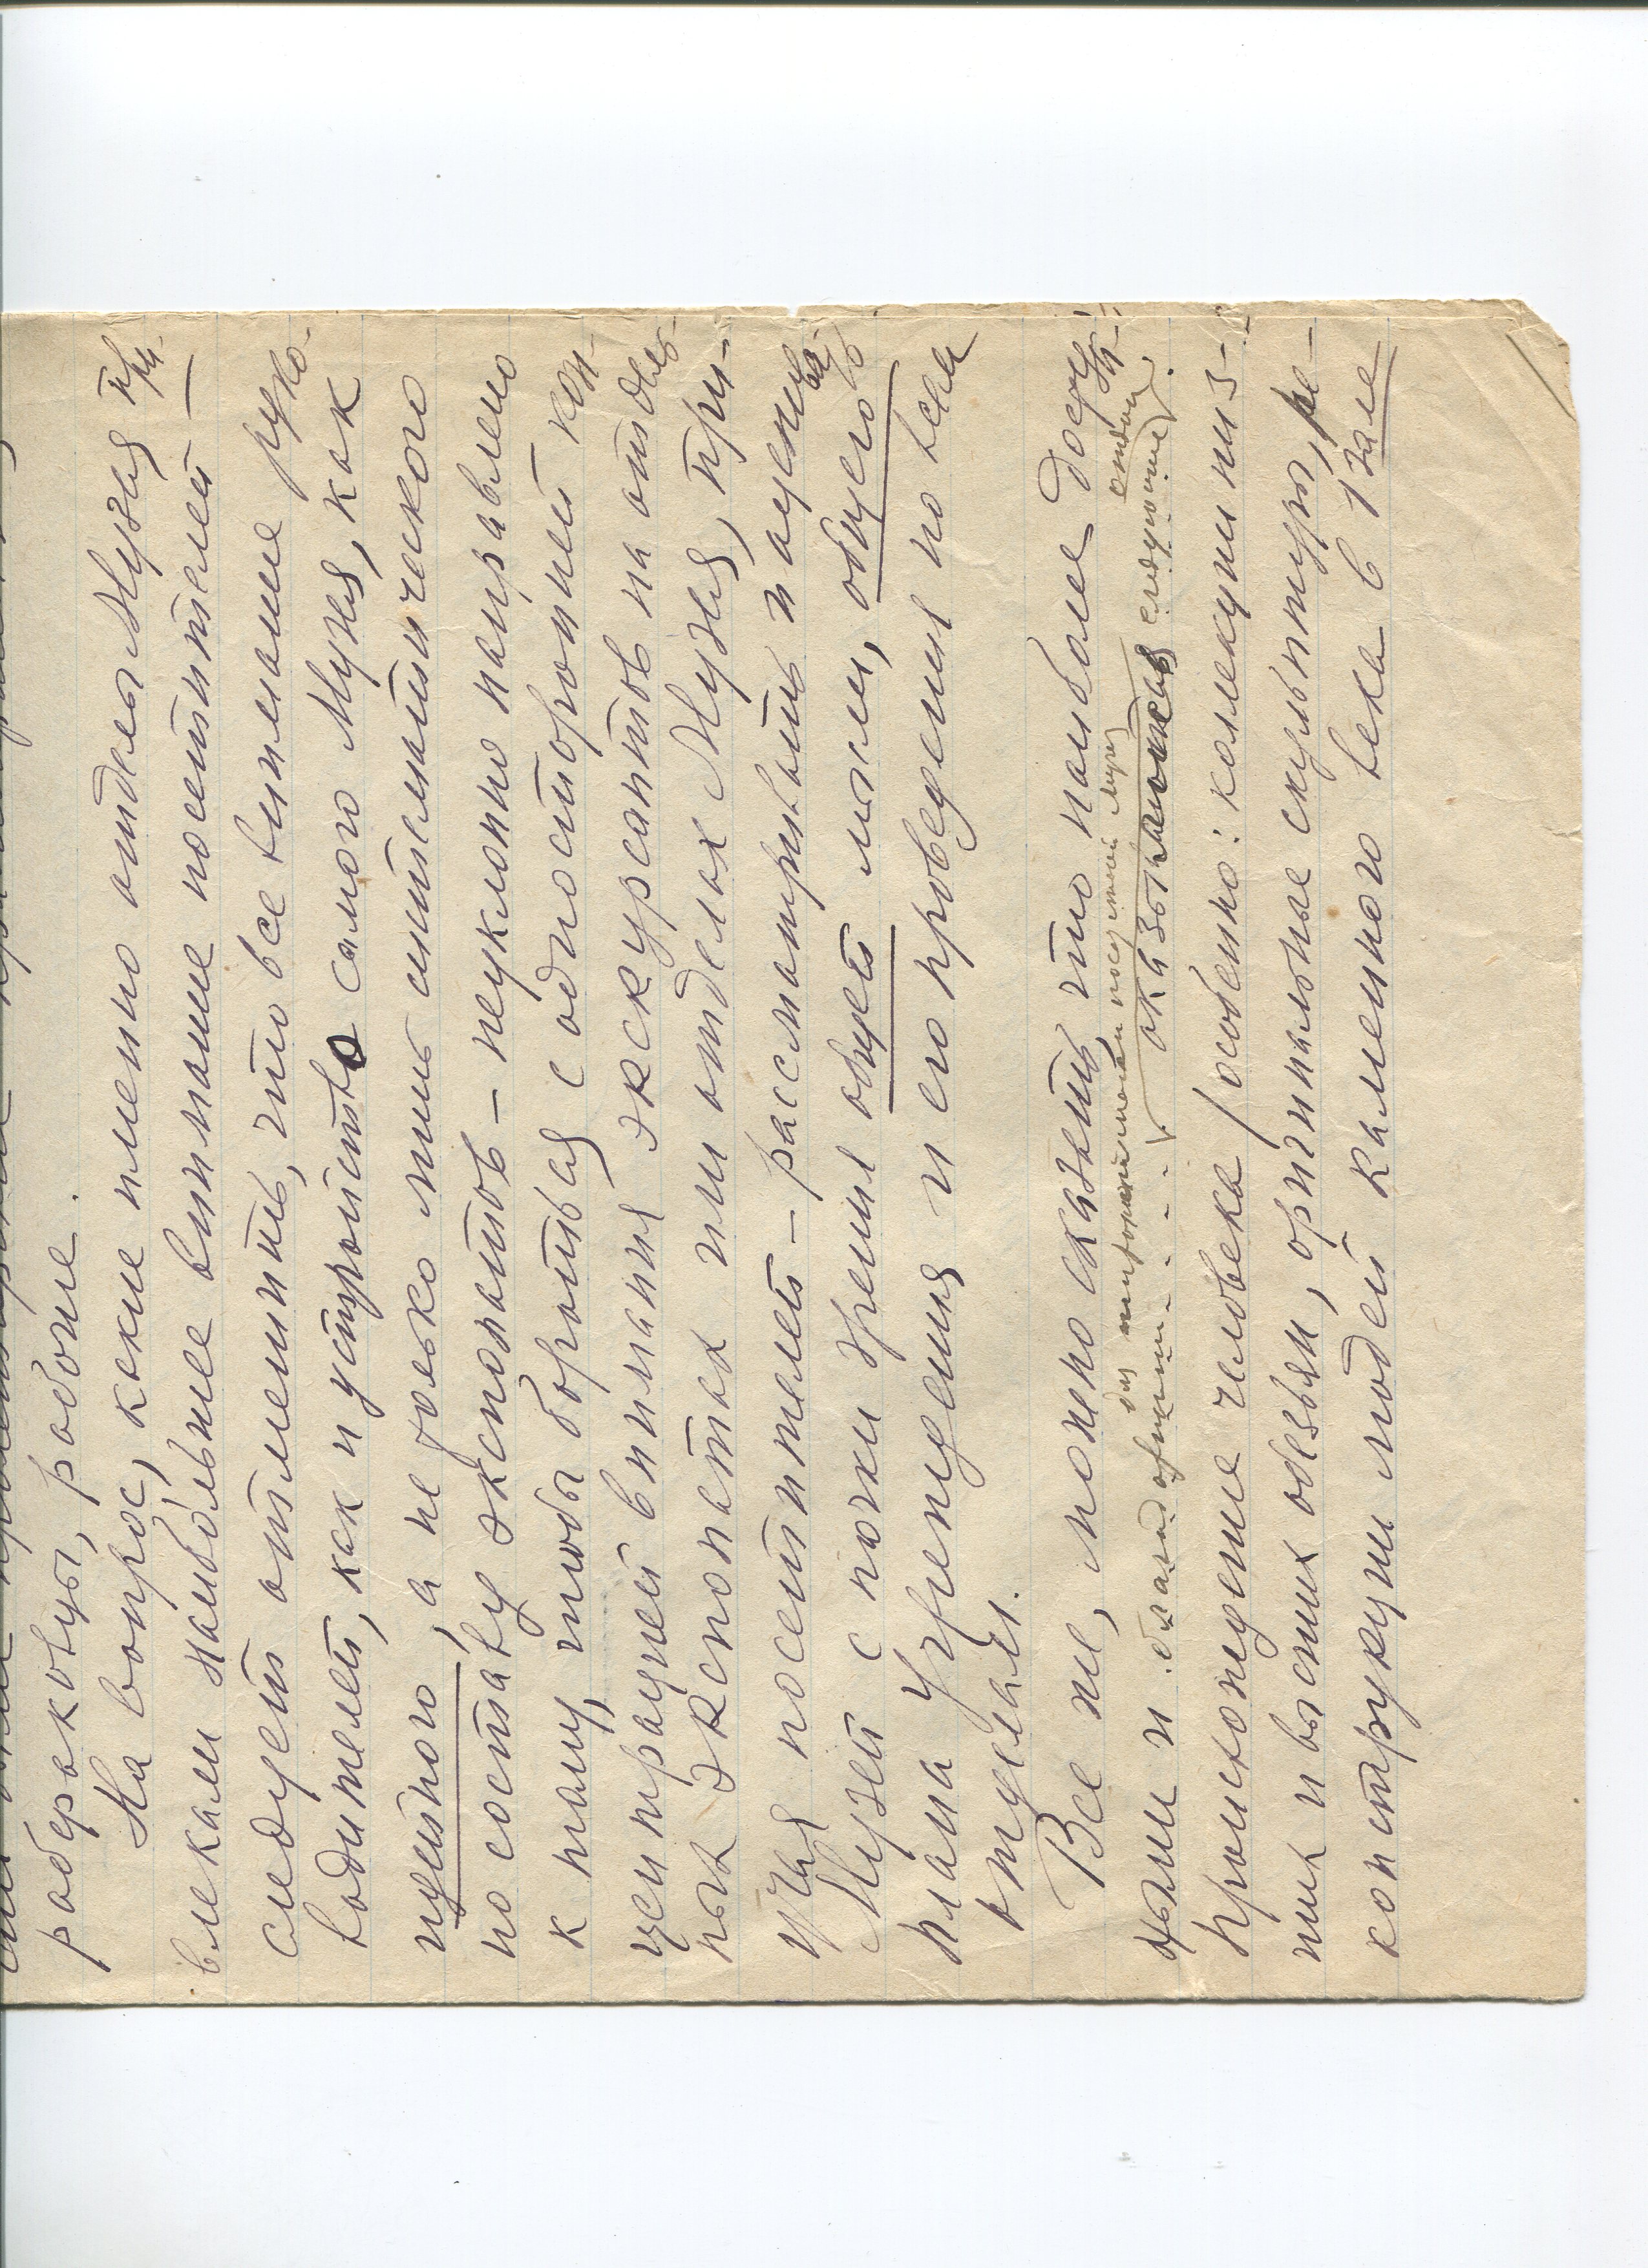 рабфаковцы, рабочие.
На вопрос, какие именно отделы Музея при-
влекали наибольшее внимание посетителей —
следует отметить, что все внимание руко-
водителей, как и устройство самого Музея, как
, а не только лишь систематического
по составу экспонатов — неуклонно направлено
к тому, чтобы бороться с односторонней кон-
центрацией внимания экскурсантов на отдель-
ных экспонатах или отделах Музея, при-
учая посетителей — рассматривать и оценивать
Музей с точки зрения общей идеи, общего
плана Учреждения и его проведения по всем
отделам.
Все же, можно сказать, что наиболее доступ-
ными и для широкой посетит. муз.
оказываются следующие отделы:
происхождение человека /особенно: коллекции низ-
ших и высших обезьян, оригинальные скульптуры, ре-
конструкции людей каменного века в 1 зале